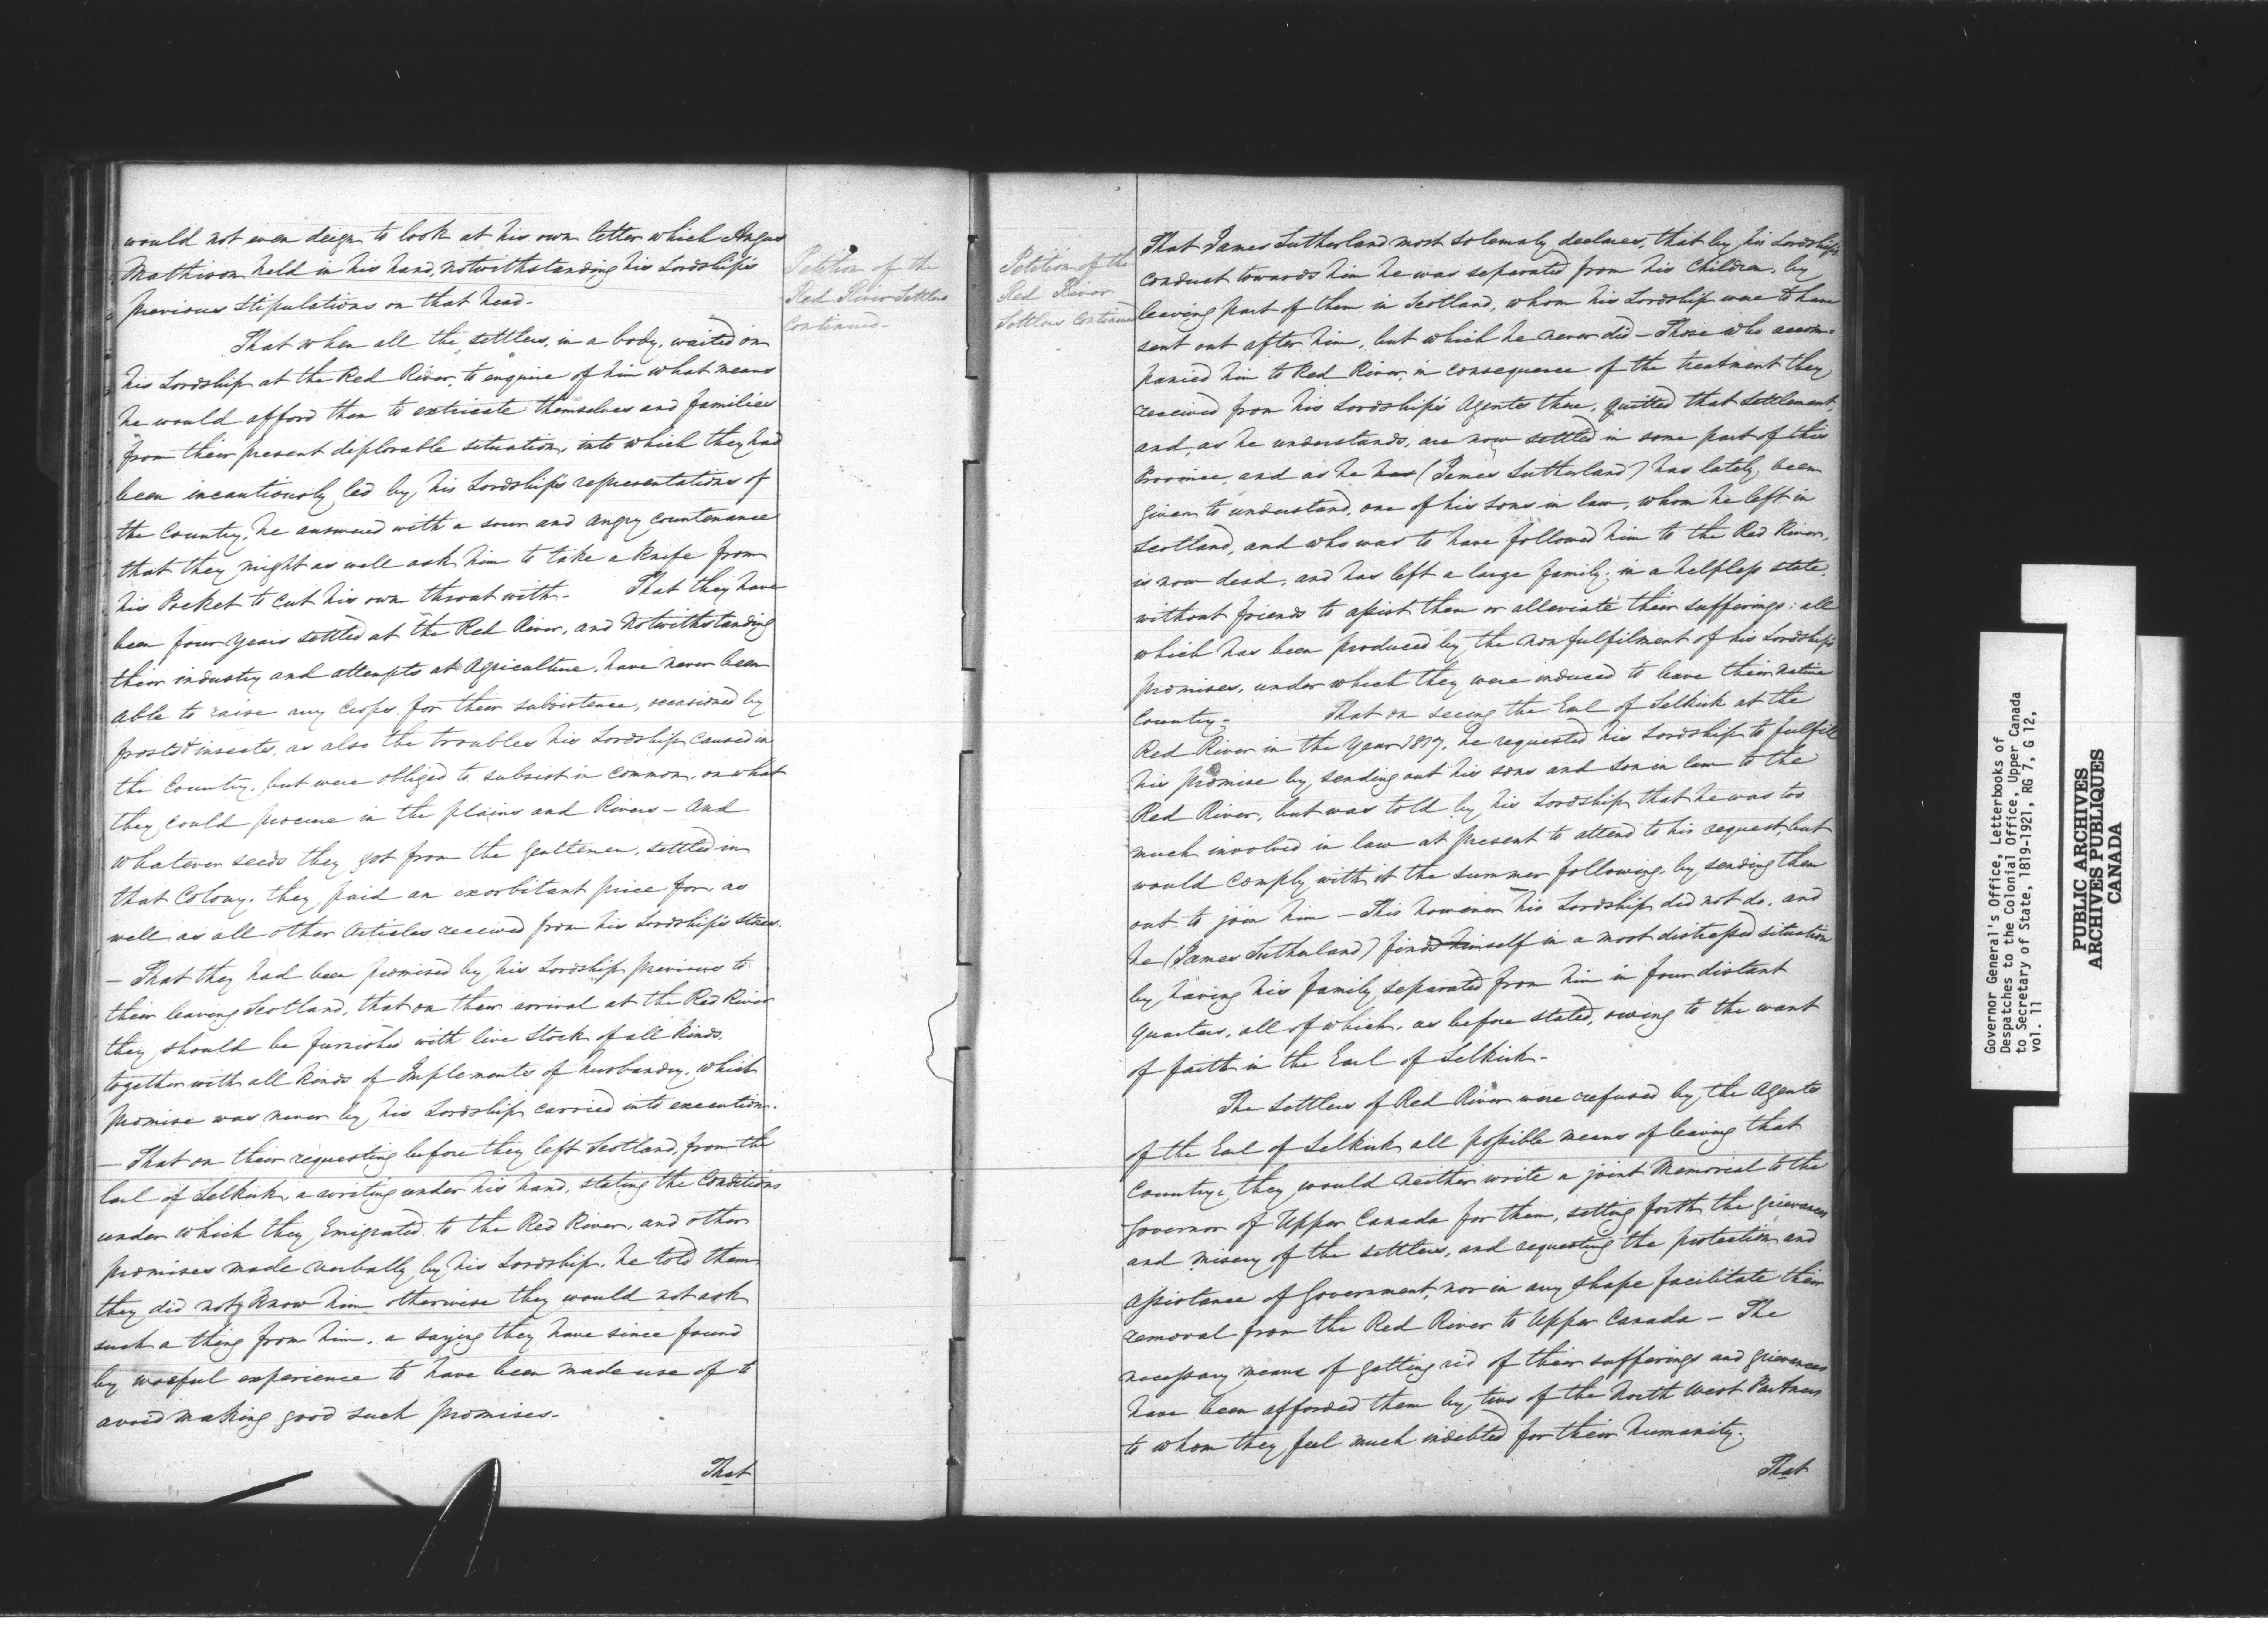 would not even deign to look at his own letter which Angus
Mathison held in his hand, notwithstanding his Lordship's
previous stipulations on that head.
That when all the settlers, in a body, waited on
his Lordship at the Red River, to enquire of him what means
he would afford them to extricate themselves and families
from their present deplorable situation, into which they had
been incautiously led by his Lordship's representations of
the Country, he answered with a sour and angry countenance
that they might as well ask him to take a knife from
his Pocket to cut his own throat with. That they have
been four years settled at the Red River, and Notwithstanding
their industry and attempts at Agriculture, have never been
able to raise any Crops for their subsistence, occasioned by
frosts & insects, as also the troubles his Lordship caused in
the Country, but were obliged to subsist in common, on what
they could procure in the plains and Rivers - And
whatever seeds they got from the Gentlemen, settled in
that Colony, they paid an exorbitant price for, as
well as all other Articles received from his Lordship's Stores.
- That they had been promised by his Lordship previous to
their leaving Scotland, that on their arrival at the Red River
they should be furnished with live Stock of all kinds,
together with all kinds of Implements of husbandry, which
promise was never by his Lordship carried into execution.
- That on their requesting before they left Scotland, from the
Earl of Selkirk, a writing under his hand, stating the Conditions
under which they Emigrated to the Red River, and other
promises made verbally by his Lordship, he told them
they did not know him otherwise they would not ask
such a thing from him, a saying they have since found
by woeful experience to have been made use of to
avoid making good such promises.
That
Petition of the
Red River Settlers
Continued.
Petition of the
Red River
Settlers Continued
That James Sutherland most solemnly declares, that by his Lordship's
conduct towards him he was separated from his children, by
leaving part of them in Scotland, whom his Lordship were to have
sent out after him, but which he never did - Those who accom=
panied him to Red River, in consequence of the treatment they
received from his Lordship's Agents there, quitted that settlement,
and, as he understands, are now settled in some part of this
Province, and as he has (James Sutherland) has lately been
given to understand, one of his sons in law, whom he left in
Scotland, and who was to have followed him to the Red River,
is now dead, and has left a large family, in a helpless state,
without friends to assist them or alleviate their sufferings: all
which has been produced by the non fulfilment of his Lordship's
promises, under which they were induced to leave their native
Country. That on seeing the Earl of Selkirk at the
Red River in the Year 1817, he requested his Lordship to fulfill
his promise by sending out his sons and son in law to the
Red River, but was told by his Lordship that he was too
much involved in law at present to attend to his request, but
would comply with it the summer following, by sending them
out to join him - This however his Lordship did not do, and
he (James Sutherland) finds himself in a most distressed situation
by having his family separated from him in four distant
quarters, all of which, as before stated, owing to the want
of faith in the Earl of Selkirk.
The settlers of Red River were refused by the Agents
of the Earl of Selkirk all possible means of leaving that
Country, they would neither write a joint Memorial to the
Governor of Upper Canada for them, setting forth the grievances
and misery of the settlers, and requesting the protection and
assistance of Government, nor in any shape facilitate their
removal from the Red River to Upper Canada - The
necessary means of getting rid of their sufferings and grievances
have been afforded them by two of the North West Partners
to whom they feel much indebted for their humanity.
That
Governor General's Office, Letterbooks of
Despatches to the Colonial Office, Upper Canada
to Secretary of State, 1819-1921, RG 7, G 12,
vol. 11
PUBLIC ARCHIVES
ARCHIVES PUBLIQUES
CANADA